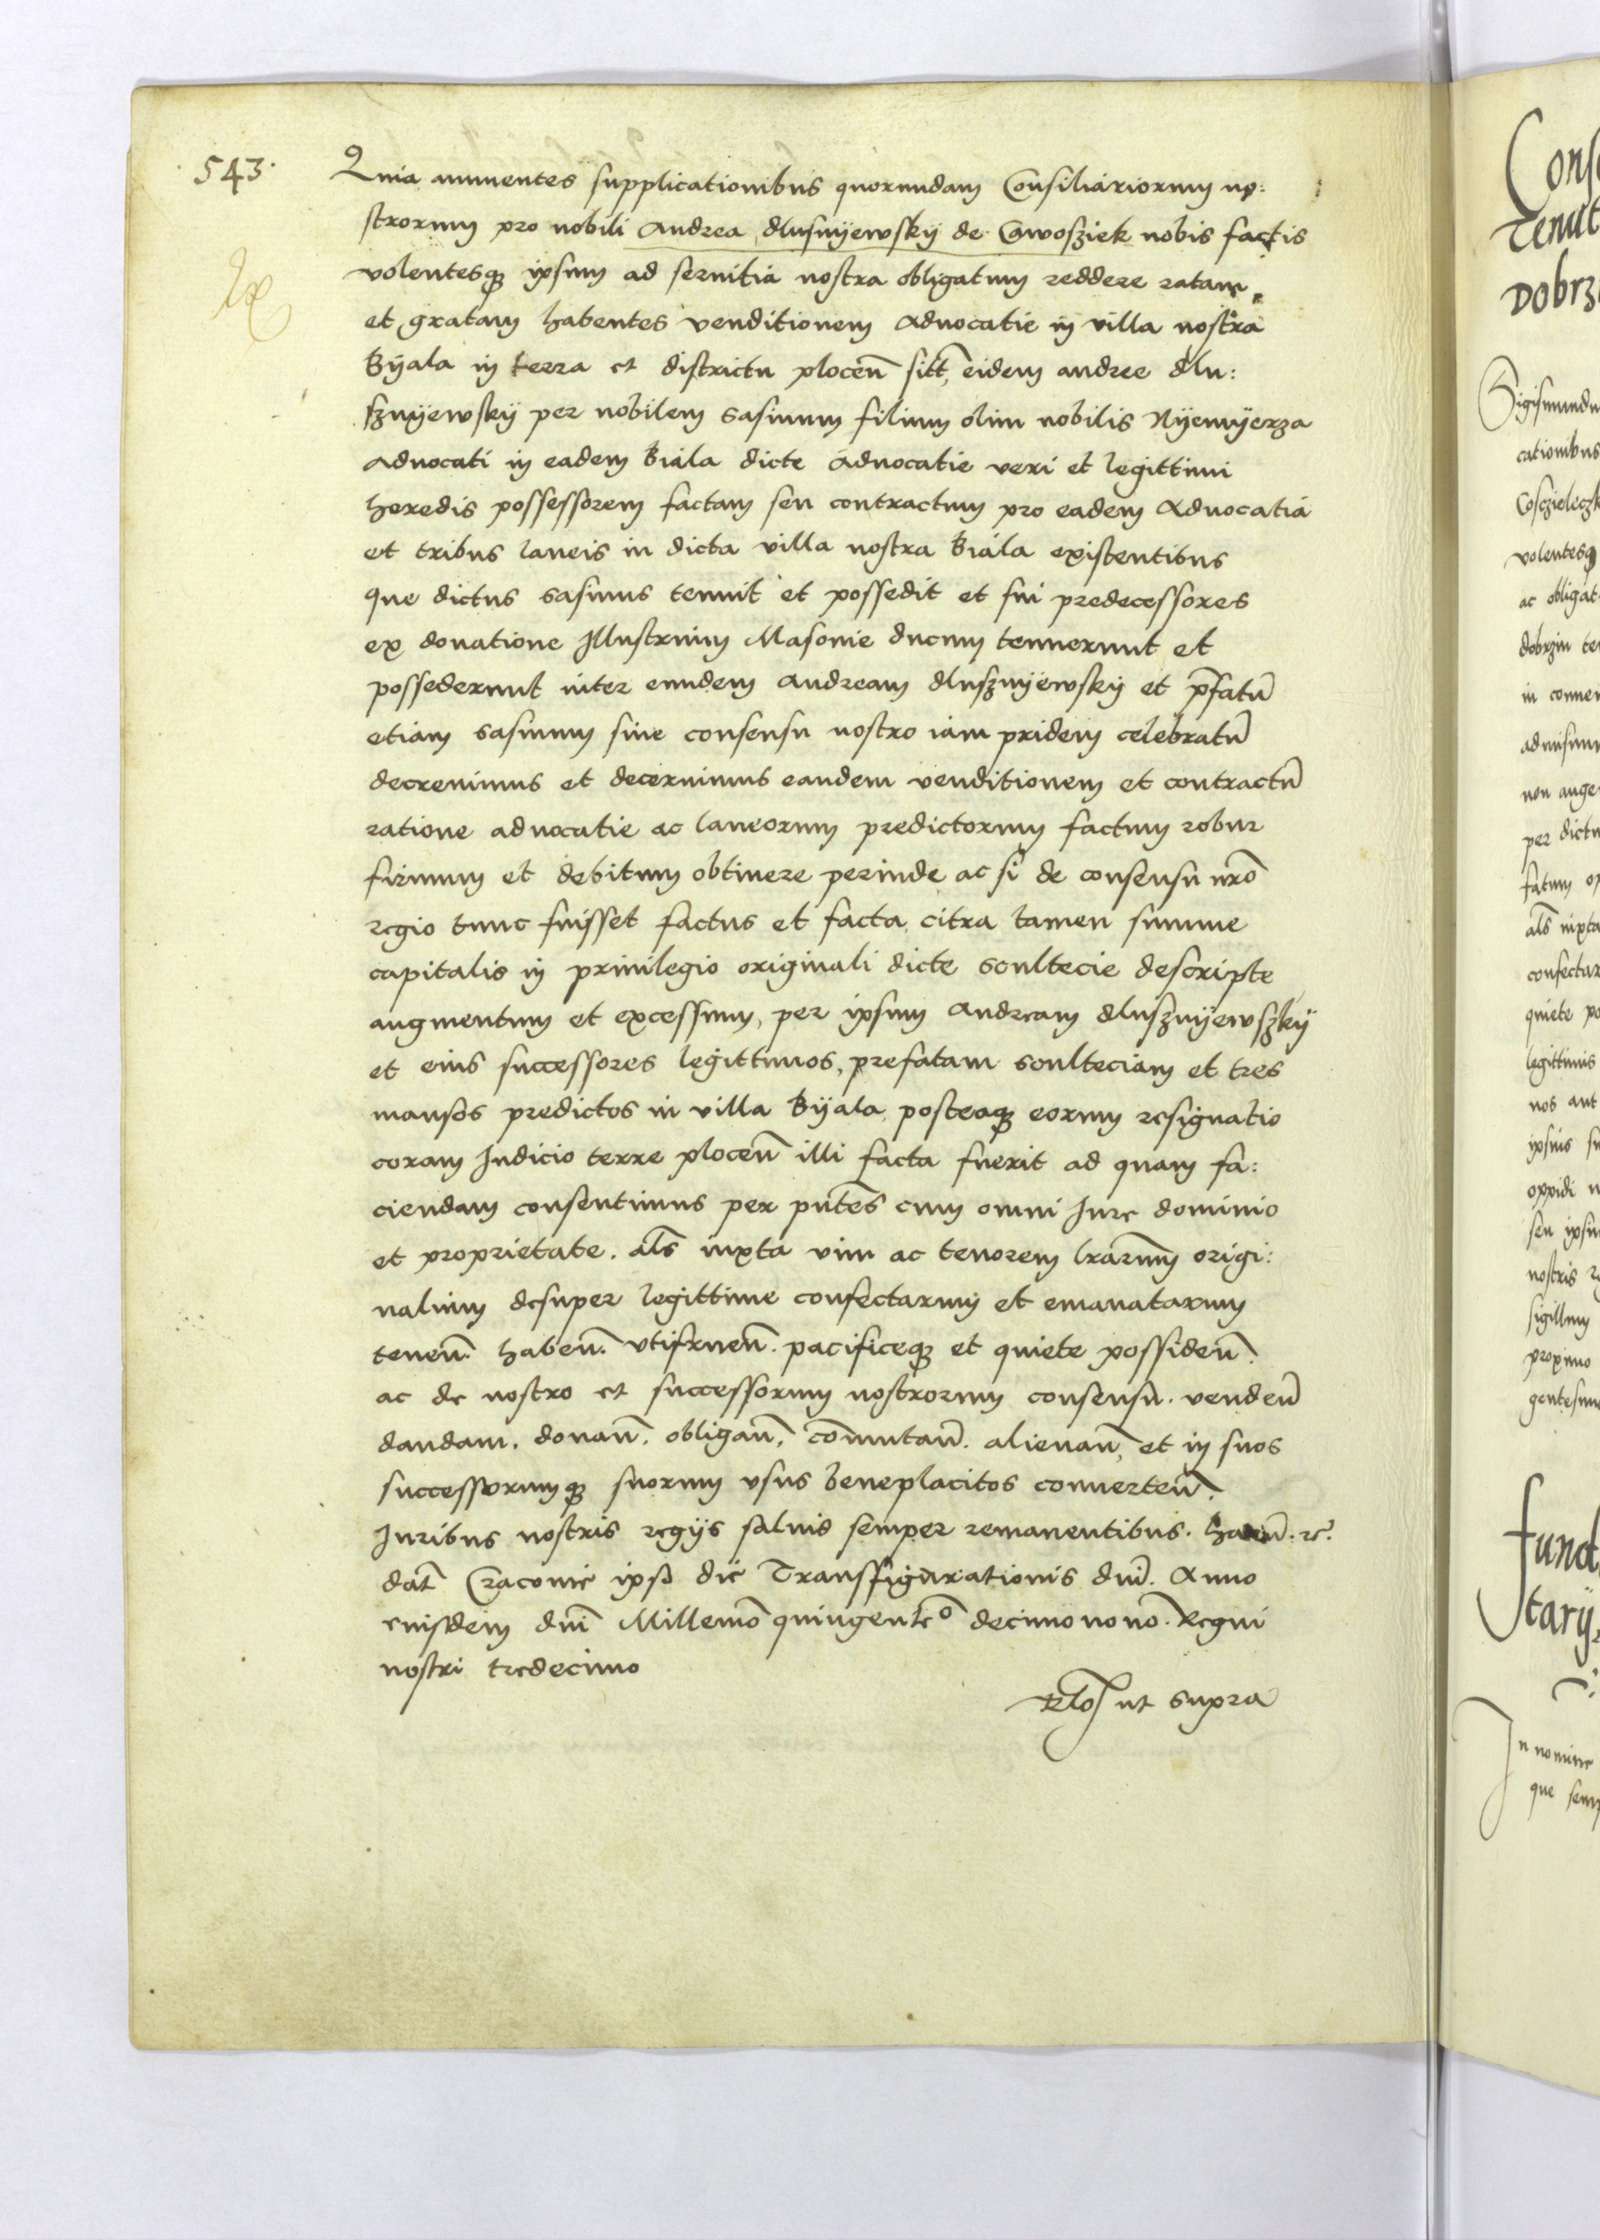 543.
Quia annuentes supplicationibus quorundam Consiliariorum no:
strorum pro nobili Andrea dlusnyewskÿ de Gwosziek nobis factis
volentesq ipsum ad seruitia nostra obligatum reddere ratam
et gratam habentes venditionem Aduocatie in villa nostra
Bÿala in terra et districtu plocen̄ sitt̄ eidem andree dlu:
sznÿewskÿ per nobilem sasinum filium olim nobilis Nÿemÿerza
aduocati in eadem Biala dicte Aduocatie veri et legittimi
heredis possessorem factam seu contractum pro eadem Aduocatia
et tribus laneis in dicta villa nostra Biala existentibus
que dictus sasinus tenuit et possedit et sui predecessores
ex donatione Illustrium Masouie ducum tennerunt et
possederunt inter eundem Andream dlusznÿewskÿ et p̄fatū
etiam sasinum sine consensu nostro iam pridem celebratū
decreuimus et decernimus eandem venditionem et contractū
ratione aduocatie ac laneorum predictorum factum robur
firmum et debitum obtinere perinde ac si de consensu nr̄o
regio tunc fuisset factus et facta citra tamen summe
capitalis in priuilegio originali dicte scultecie descripte
augmentum et excessum, per ipsum Andream dlusznÿewszkÿ
et eius successores legittimos, prefatam scultecian et tres
mansos predictos in villa Bÿala posteaq eorum resignatio
coram Iudicio terre plocen̄ illi facta fuerit ad quam fa:
ciendam consentimus per pn̄tes cum omni Iure dominio
et proprietate. al̄s iuxta vim ac tenorem lr̄arum origi:
nalium desuper legittime confectarum et emanatarum
tenen̄. haben̄. vtifruen̄. pacificeq et quiete possiden̄.
ac de nostro et successorum nostrorum consensu. venden̄
dandam. donan̄. obligan̄, com̄utan̄. alienan̄, et in suos
successorumq suorum vsus beneplacitos conuerten̄.
Iuribus nostris regÿs saluis semper remanentibus. harū. rc̄.
dat̄ Cracouie ipso die Transfigurationis dn̄i. Anno
eiusdem dn̄i Millem̄o quingente͞o decimo nono. Regni
nostri tredecimo
Rlo ut supra
Cons
Tenut
Dobrz
Sigismundu
cationibus
Cosczieleczk
volentesq
ac obligat
dobrzin te
in conue
non auge
per dictu
fatum
al̄s iuxta
confectar
quiete po
legittimis
nos aut
ipsius su
oppidi n
seu ipsu
nostris
sigillum
proximo
gentesim
fund
stary
In nomine
que semp